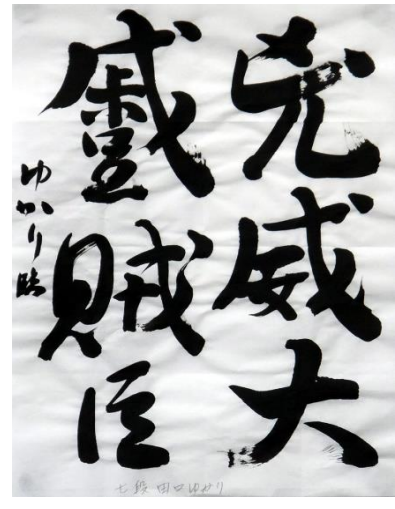 兇威大
蹙賊臣
ゆかり臨
七段 田口ゆかり